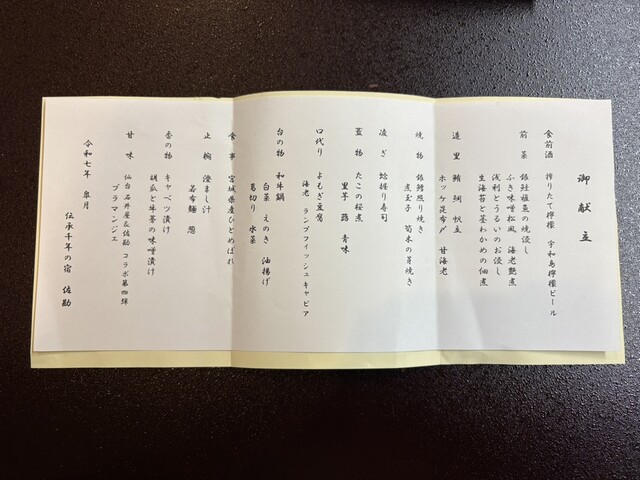 御献立
食前酒　搾りたて檸檬　宇和島檸檬ビール
前菜　銀鮭雑魚の焼浸し
ふき味噌松風　海老艶煮
浅利とうるいのお浸し
生海苔と茎わかめの佃煮
造里　鮪　鰤　帆立
ホッケ昆布〆　甘海老
焼物　銀鱈照り焼き
煮玉子　筍木の芽焼き
凌ぎ　鯰握り寿司
蓋物　たこの桜煮
里芋　蕗　青味
口代り　よもぎ豆腐
海老　ランプフィッシュキャビア
台の物　和牛鍋
白菜　えのき　油揚げ
葛切り　水菜
食事　宮城県産ひとめぼれ
止椀　澄まし汁
若布麺　葱
香の物　キャベツ漬け
胡瓜と牛蒡の味噌漬け
甘味　仙台石井屋&佐勘　コラボ第四弾
ブラマンジェ
令和七年　皐月
伝承千年の宿　佐勘